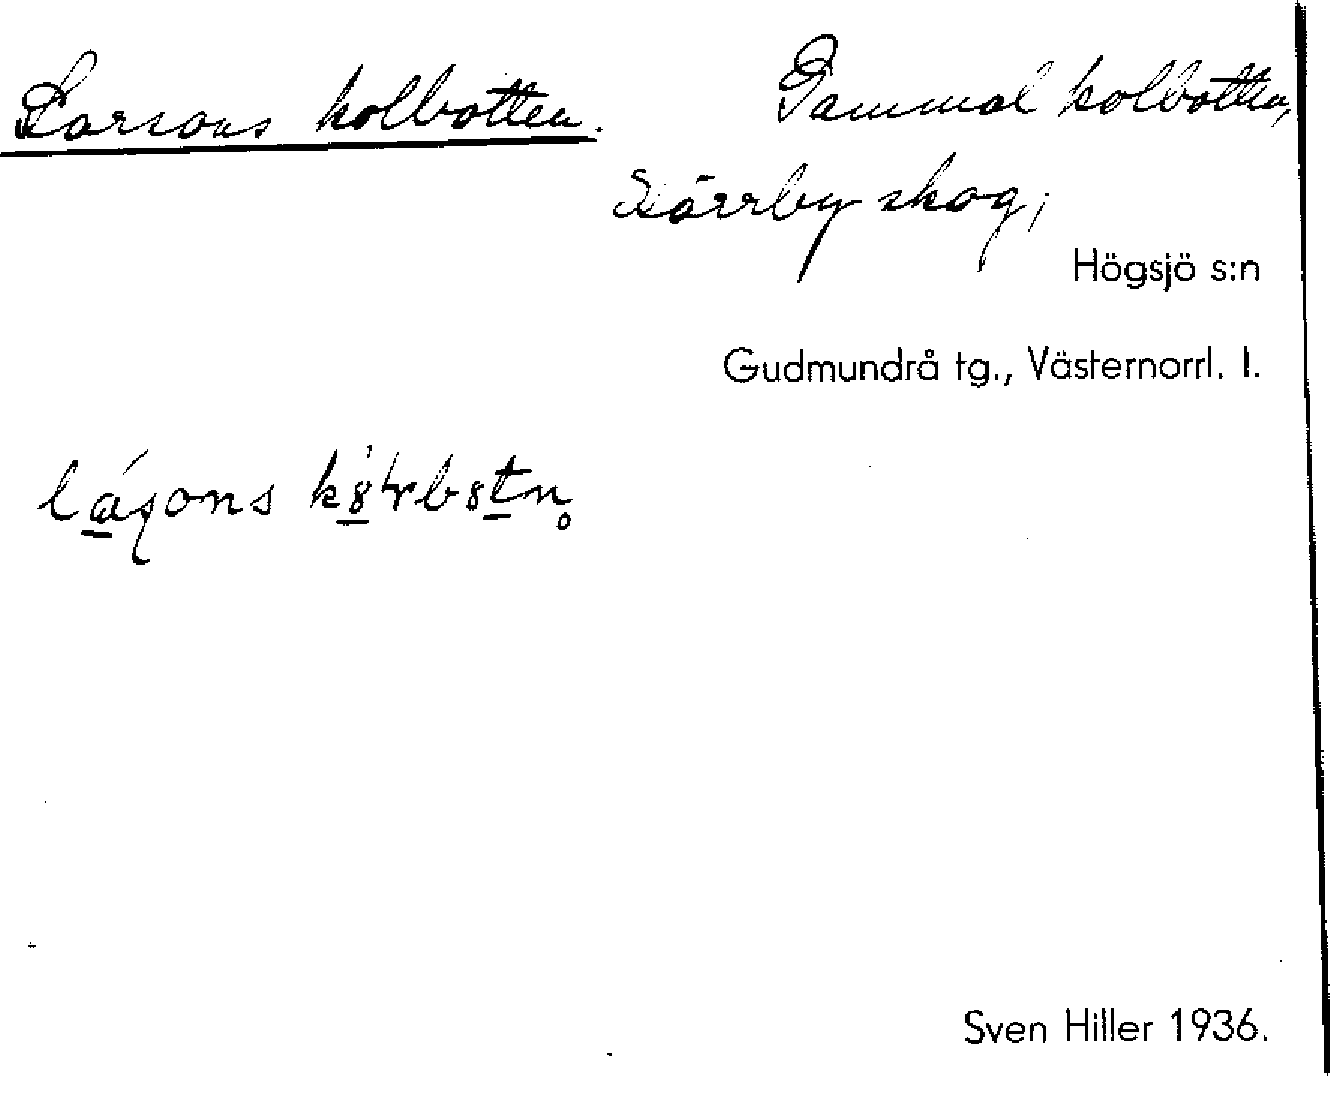 Larsons kolbotten.
Gammal kolbotten,
skog;
Högsjö s:n
Gudmundrå tg., Västernorrl. l.
Sven Hiller 1936.